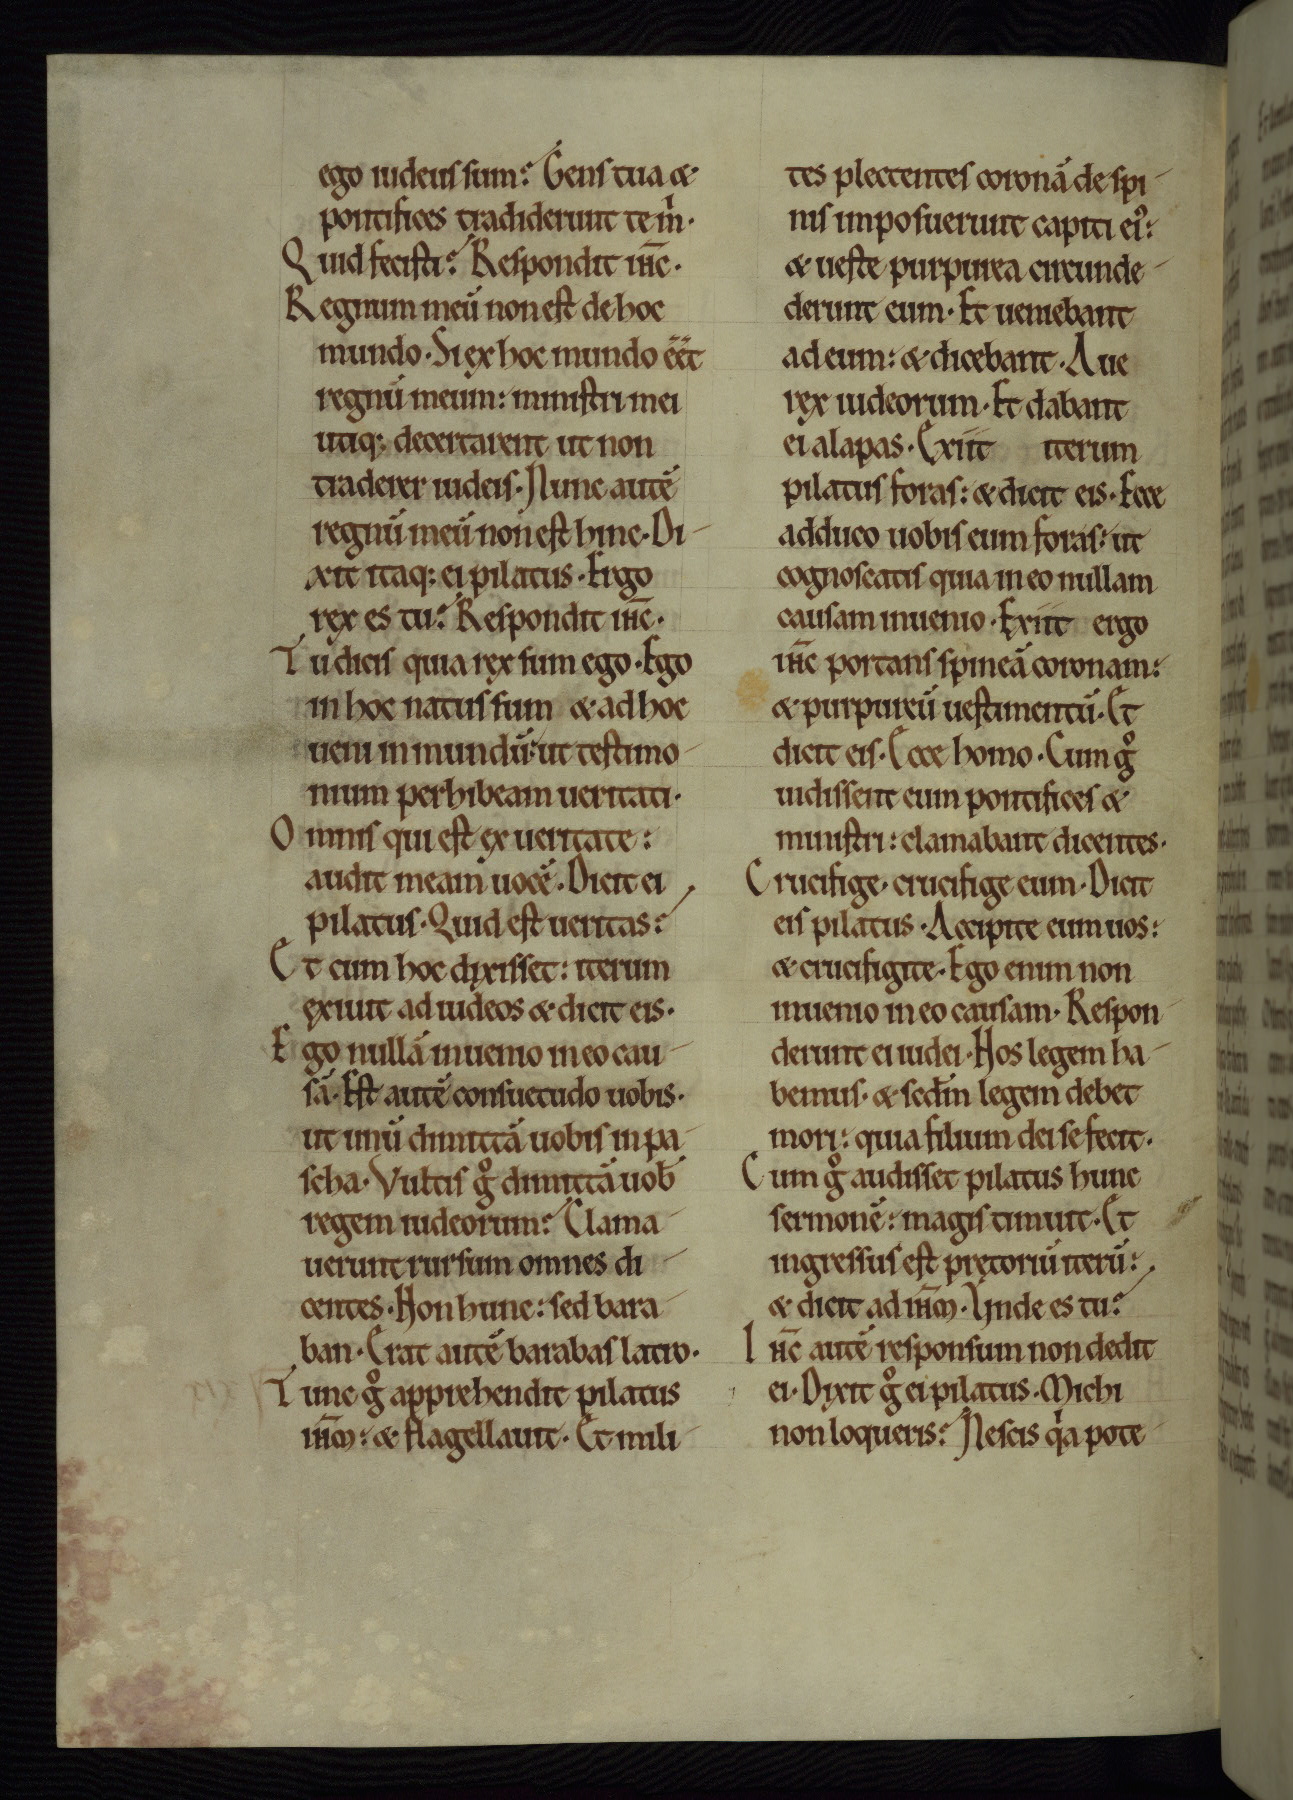 ego iudeus sum? Gens tua &
pontifices tradiderunt te m̍.
Quid fecisti? Respondit ihc̄.
Regnum meū non est de hoc
mundo. Si ex hoc mundo eēt
regnū meum: ministri mei
utiq; decertarent ut non
traderer iudeis. Nunc autē
regnū meū non est hinc. Di-
xit itaq; ei pilatus. Ergo
rex es tu? Respondit ihc̄.
Tu dicis quia rex sum ego. Ego
in hoc natus sum & ad hoc
ueni in mundū: ut testimo-
nium perhibeam ueritati.
Omnis qui est ex ueritate:
audit meam uocē. Dicit ei
pilatus. Quid est ueritas?
Et cum hoc dixisset: iterum
exiuit ad iudeos & dicit eis.
Ego nullā inuenio in eo cau-
sā. Est autē consuetudo uobis.
ut unū dimittā uobis in pa-
scha. Vultis gͦ dimittā uob̄
regem iudeorum? Clama-
uerunt rursum omnes di-
centes. Non hunc: sed bara-
ban. Erat autē barabas latro.
Tunc gͦ apprehendit pilatus
ihm̄: & flagellauit. Et mili-
tes plectentes coronā de spi-
nis imposuerunt capiti ei᾿:
& ueste purpurea circunde-
derunt eum. Et ueniebant
ad eum: & dicebant. Aue
rex iudeorum. Et dabant
ei alapas. Exiit iterum
pilatus foras: & dicit eis. Ecce
adduco uobis eum foras: ut
cognoscatis quia in eo nullam
causam inuenio. Exiit ergo
ihc̄ portans spineā coronam:
& purpureū uestimentū. Et
dicit eis. Ecce homo. Cum gͦ
uidissent eum pontifices &
ministri: clamabant dicentes.
Crucifige. crucifige eum. Dicit
eis pilatus. Accipite eum uos:
& crucifigite. Ego enim non
inuenio in eo causam. Respon-
derunt ei iudei. Nos legem ha-
bemus. & scd̄m legem debet
mori: quia filium dei se fecit.
Cum gͦ audisset pilatus hunc
sermonē: magis timuit. Et
ingressus est pretoriū iterū:
& dicit ad ihm̄. Unde es tu?
Ihc̄ autē responsum non dedit
ei. Dixit gͦ ei pilatus. Michi
non loqueris? Nescis qͥa pote-